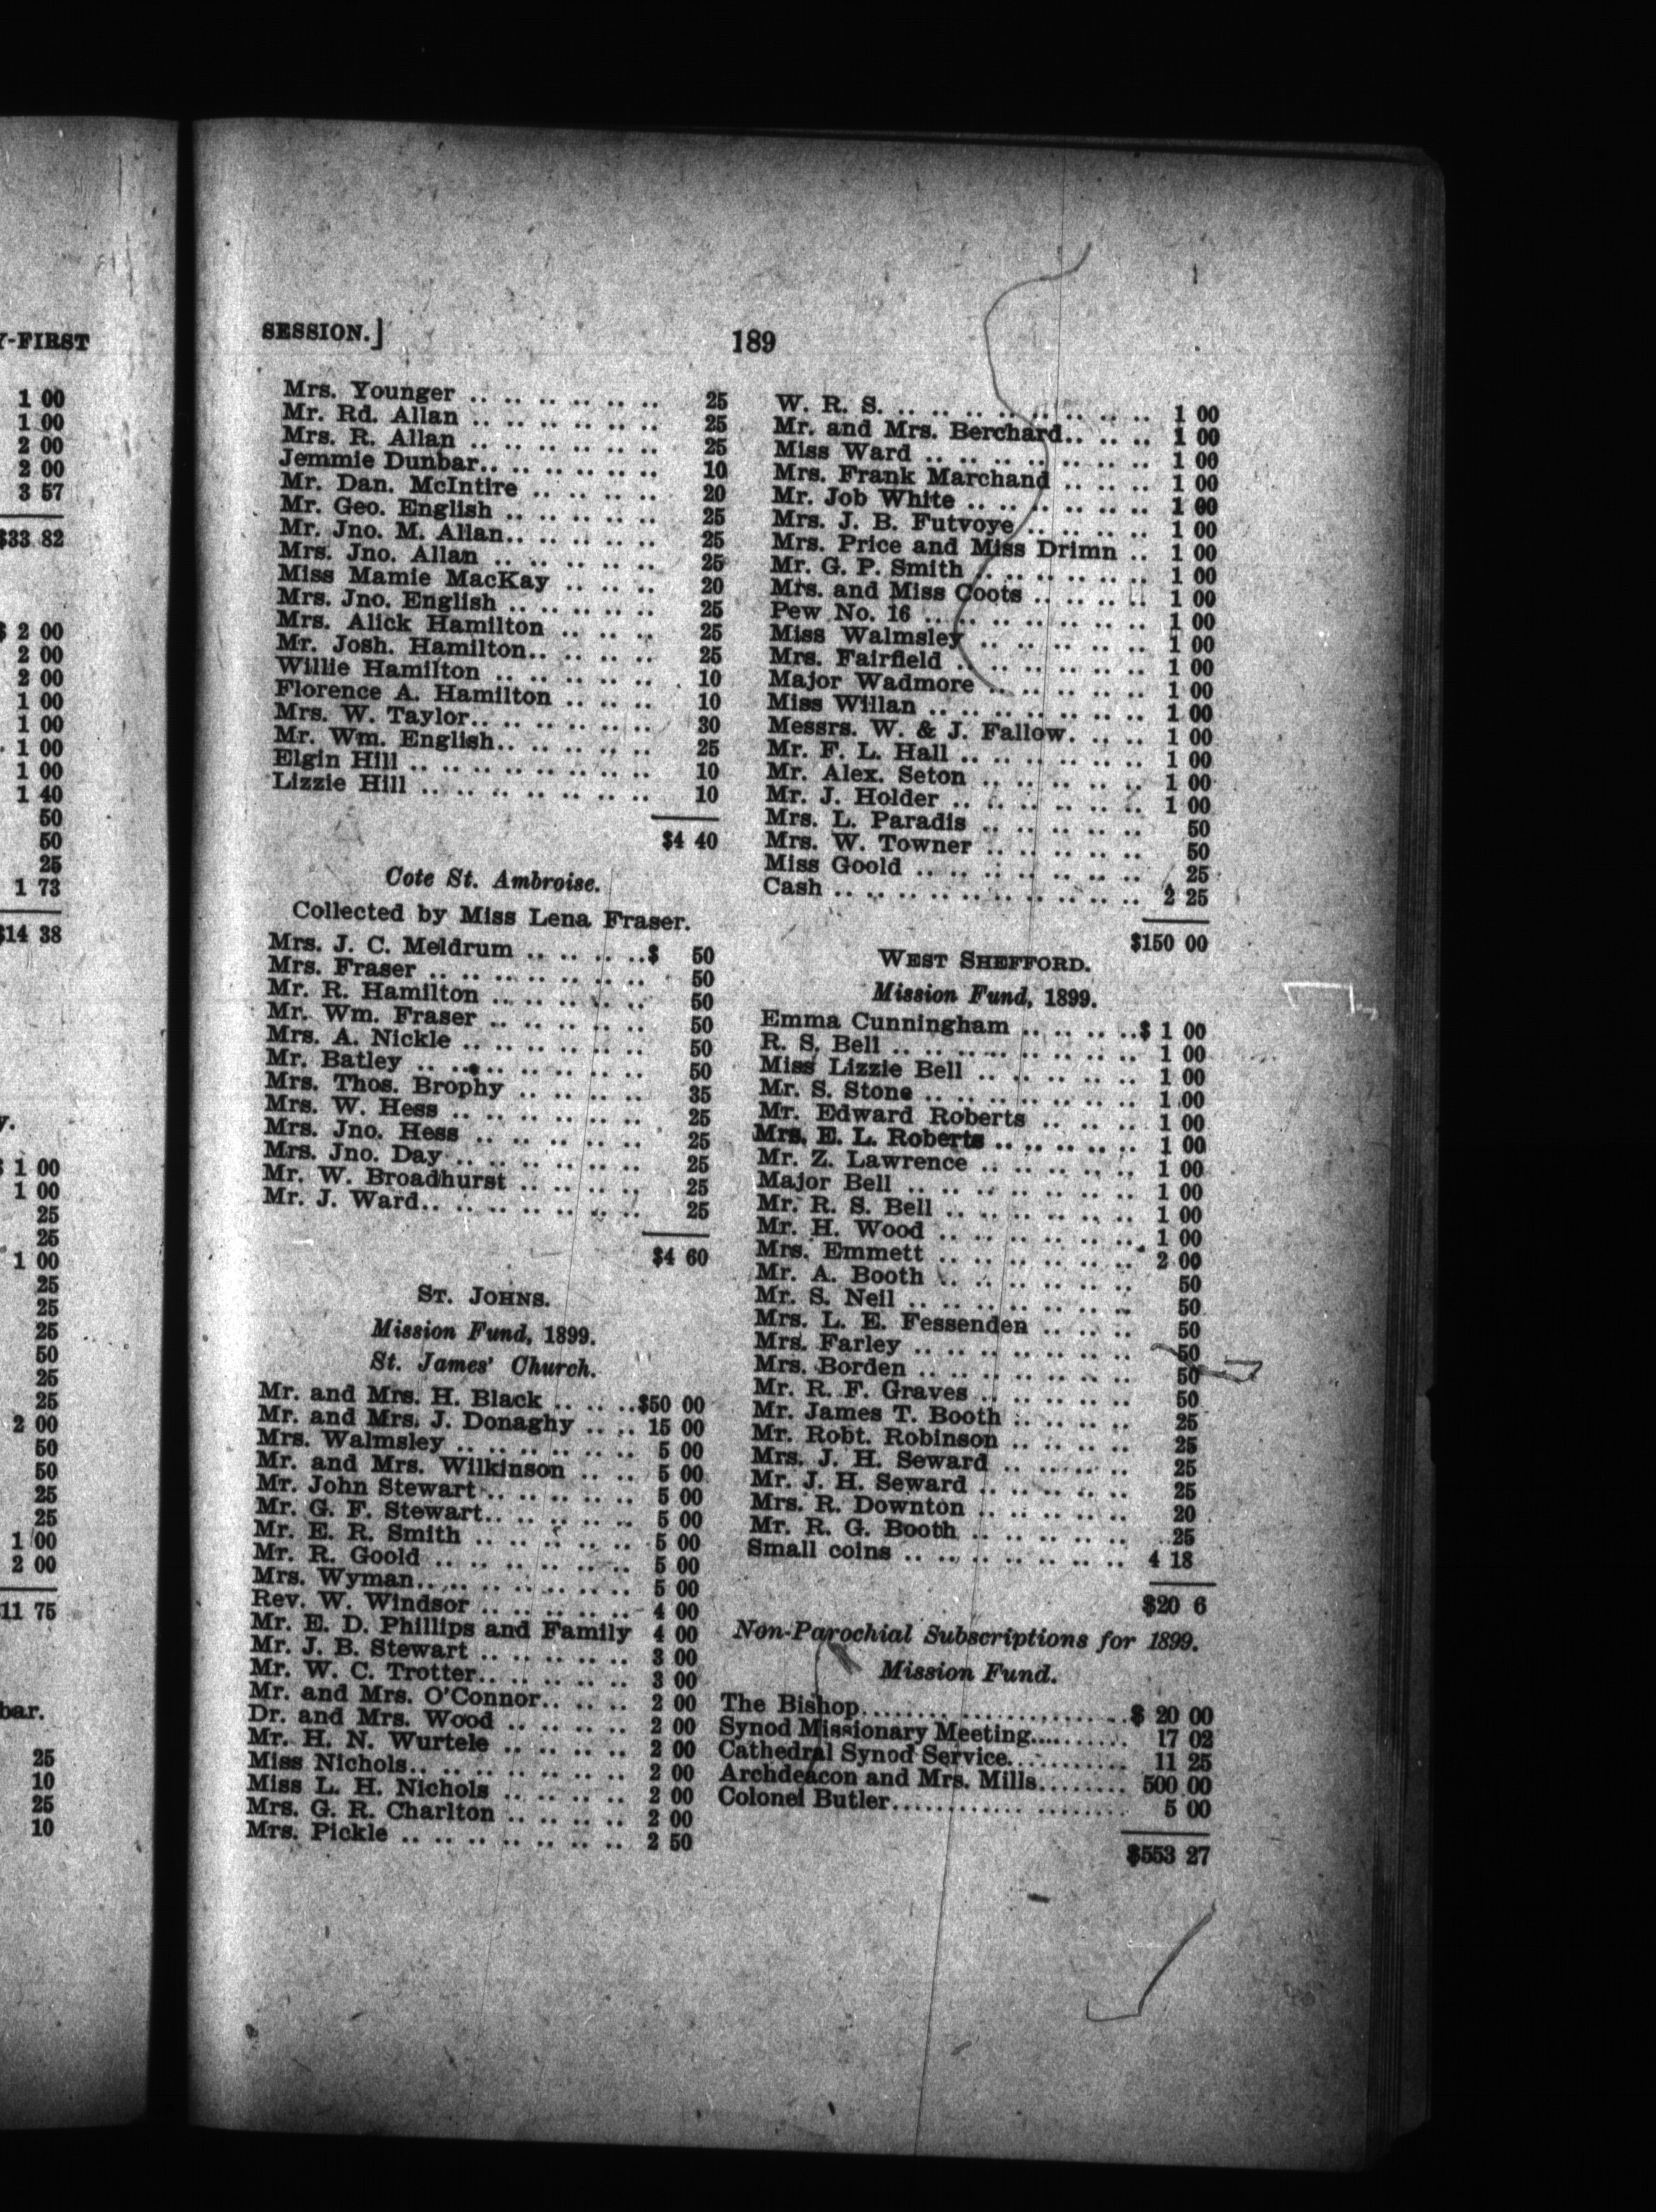 Y-FIRST
1 00
1 00
2 00
2 00
3 57
$33 82
$ 2 00
2 00
2 00
1 00
1 00
1 00
1 00
1 40
50
50
25
1 73
$14 38
y.
$ 1 00
1 00
25
25
1 00
25
25
25
50
25
25
2 00
50
50
25
25
1 00
2 00
11 75
bar.
25
10
25
10
SESSION.]
189
Mrs. Younger .. .. .. .. .. .. .. 25
Mr. Rd. Allan .. .. .. .. .. .. .. 25
Mrs. R. Allan .. .. .. .. .. .. .. 25
Jemmie Dunbar.. .. .. .. .. .. .. 10
Mr. Dan. McIntire .. .. .. .. .. 20
Mr. Geo. English .. .. .. .. .. .. 25
Mr. Jno. M. Allan.. .. .. .. .. .. 25
Mrs. Jno. Allan .. .. .. .. .. .. 25
Miss Mamie MacKay .. .. .. .. 20
Mrs. Jno. English .. .. .. .. .. .. 25
Mrs. Alick Hamilton .. .. .. .. 25
Mr. Josh. Hamilton.. .. .. .. .. 25
Willie Hamilton .. .. .. .. .. .. 10
Florence A. Hamilton .. .. .. .. 10
Mrs. W. Taylor.. .. .. .. .. .. .. 30
Mr. Wm. English.. .. .. .. .. .. 25
Elgin Hill .. .. .. .. .. .. .. .. .. 10
Lizzie Hill .. .. .. .. .. .. .. .. 10
$4 40
Cote St. Ambroise.
Collected by Miss Lena Fraser.
Mrs. J. C. Meldrum .. .. .. .. ..$ 50
Mrs. Fraser .. .. .. .. .. .. .. .. 50
Mr. R. Hamilton .. .. .. .. .. .. 50
Mr. Wm. Fraser .. .. .. .. .. .. 50
Mrs. A. Nickle .. .. .. .. .. .. .. 50
Mr. Batley .. .. .. .. .. .. .. .. 50
Mrs. Thos. Brophy .. .. .. .. .. 35
Mrs. W. Hess .. .. .. .. .. .. .. 25
Mrs. Jno. Hess .. .. .. .. .. .. 25
Mrs. Jno. Day .. .. .. .. .. .. .. 25
Mr. W. Broadhurst .. .. .. .. .. 25
Mr. J. Ward.. .. .. .. .. .. .. .. 25
$4 60
ST. JOHNS.
Mission Fund, 1899.
St. James' Church.
Mr. and Mrs. H. Black .. .. ..$50 00
Mr. and Mrs. J. Donaghy .. .. 15 00
Mrs. Walmsley .. .. .. .. .. .. .. 5 00
Mr. and Mrs. Wilkinson .. .. .. 5 00
Mr. John Stewart .. .. .. .. .. .. 5 00
Mr. G. F. Stewart.. .. .. .. .. .. 5 00
Mr. E. R. Smith .. .. .. .. .. .. 5 00
Mr. R. Goold .. .. .. .. .. .. .. 5 00
Mrs. Wyman.. .. .. .. .. .. .. .. 5 00
Rev. W. Windsor .. .. .. .. .. .. 4 00
Mr. E. D. Phillips and Family 4 00
Mr. J. B. Stewart .. .. .. .. .. .. 3 00
Mr. W. C. Trotter.. .. .. .. .. .. 3 00
Mr. and Mrs. O'Connor.. .. .. .. 2 00
Dr. and Mrs. Wood .. .. .. .. .. 2 00
Mr. H. N. Wurtele .. .. .. .. .. 2 00
Miss Nichols.. .. .. .. .. .. .. .. 2 00
Miss L. H. Nichols .. .. .. .. .. 2 00
Mrs. G. R. Charlton .. .. .. .. .. 2 00
Mrs. Pickle .. .. .. .. .. .. .. .. 2 50
W. R. S. .. .. .. .. .. .. .. .. .. 1 00
Mr. and Mrs. Berchard.. .. .. .. 1 00
Miss Ward .. .. .. .. .. .. .. .. 1 00
Mrs. Frank Marchand .. .. .. .. 1 00
Mr. Job White .. .. .. .. .. .. .. 1 00
Mrs. J. B. Futvoye .. .. .. .. .. 1 00
Mrs. Price and Miss Drimn .. 1 00
Mr. G. P. Smith .. .. .. .. .. .. 1 00
Mrs. and Miss Coots .. .. .. .. .. 1 00
Pew No. 16 .. .. .. .. .. .. .. .. 1 00
Miss Walmsley .. .. .. .. .. .. .. 1 00
Mrs. Fairfield .. .. .. .. .. .. .. 1 00
Major Wadmore .. .. .. .. .. .. 1 00
Miss Willan .. .. .. .. .. .. .. .. 1 00
Messrs. W. & J. Fallow. .. .. .. 1 00
Mr. F. L. Hall .. .. .. .. .. .. .. 1 00
Mr. Alex. Seton .. .. .. .. .. .. 1 00
Mr. J. Holder .. .. .. .. .. .. .. 1 00
Mrs. L. Paradis .. .. .. .. .. .. 50
Mrs. W. Towner .. .. .. .. .. .. 50
Miss Goold .. .. .. .. .. .. .. .. 25
Cash .. .. .. .. .. .. .. .. .. .. 2 25
$150 00
WEST SHEFFORD.
Mission Fund, 1899.
Emma Cunningham .. .. .. ..$ 1 00
R. S. Bell .. .. .. .. .. .. .. .. .. 1 00
Miss Lizzie Bell .. .. .. .. .. .. 1 00
Mr. S. Stone .. .. .. .. .. .. .. .. 1 00
Mr. Edward Roberts .. .. .. .. 1 00
Mrs. E. L. Roberts .. .. .. .. .. 1 00
Mr. Z. Lawrence .. .. .. .. .. .. 1 00
Major Bell .. .. .. .. .. .. .. .. 1 00
Mr. R. S. Bell .. .. .. .. .. .. .. 1 00
Mr. H. Wood .. .. .. .. .. .. .. 1 00
Mrs. Emmett .. .. .. .. .. .. .. 2 00
Mr. A. Booth .. .. .. .. .. .. .. 50
Mr. S. Neil .. .. .. .. .. .. .. .. 50
Mrs. L. E. Fessenden .. .. .. .. 50
Mrs. Farley .. .. .. .. .. .. .. .. 50
Mrs. Borden .. .. .. .. .. .. .. .. 50
Mr. R. F. Graves .. .. .. .. .. .. 50
Mr. James T. Booth .. .. .. .. .. 25
Mr. Robt. Robinson .. .. .. .. .. 25
Mrs. J. H. Seward .. .. .. .. .. 25
Mr. J. H. Seward .. .. .. .. .. .. 25
Mrs. R. Downton .. .. .. .. .. .. 20
Mr. R. G. Booth .. .. .. .. .. .. 25
Small coins .. .. .. .. .. .. .. .. 4 18
$20 6
Non-Parochial Subscriptions for 1899.
Mission Fund.
The Bishop..........................$ 20 00
Synod Missionary Meeting.......... 17 02
Cathedral Synod Service............ 11 25
Archdeacon and Mrs. Mills........ 500 00
Colonel Butler........................ 5 00
$553 27